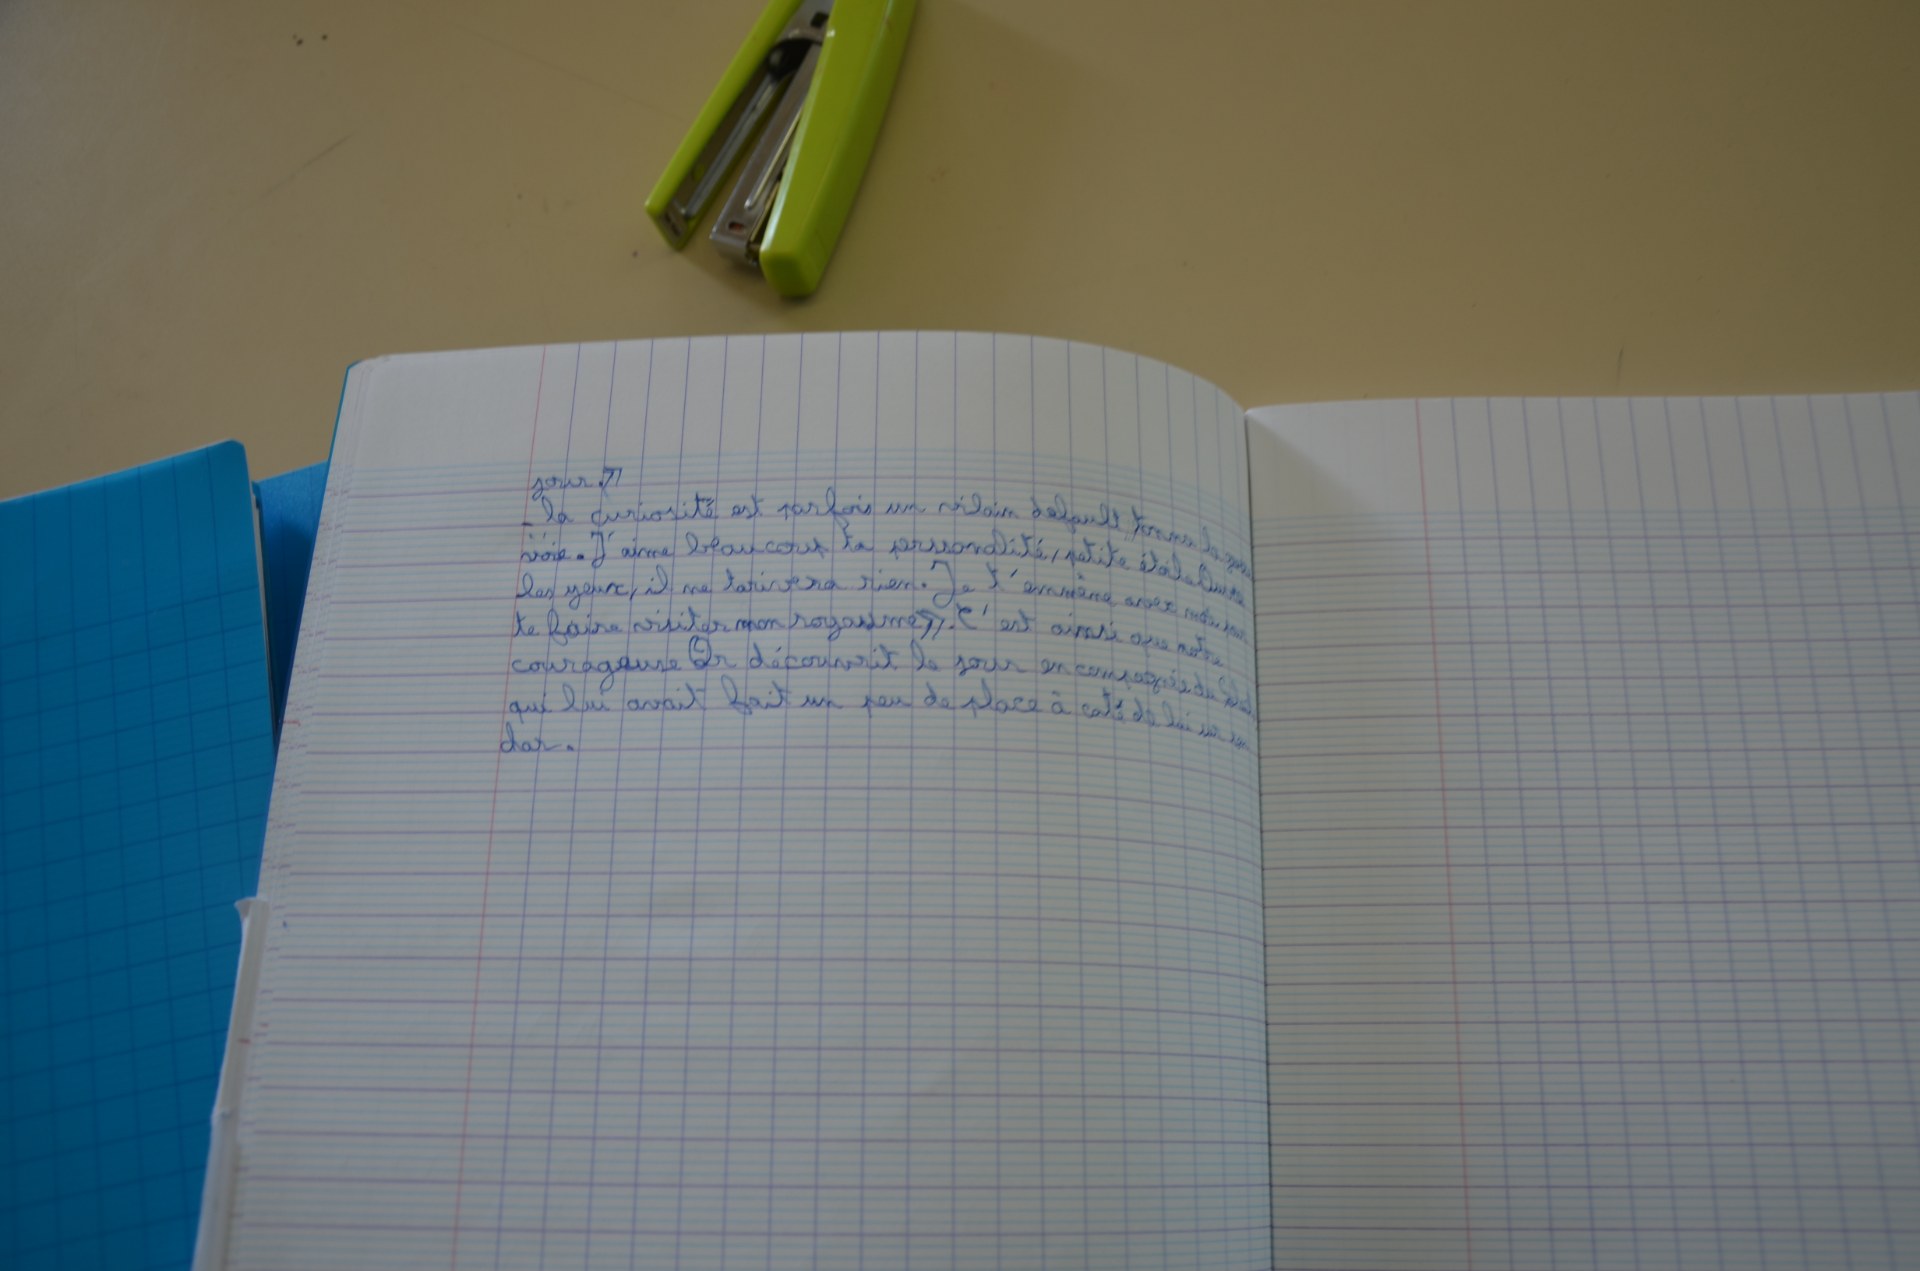 jour.»
- la curiosité est parfois un vilain default
voie. J'aime beaucoup ta personalité, petite étoile.
les yeux, il ne tarivera rien. Je t'emmène avec moi pour
te faire visiter mon royaume». C'est ainsi que notre
courageuse Or découvrit le jour en compagnie du
qui lui avait fait un peu de place à coté de lui sur son
char.